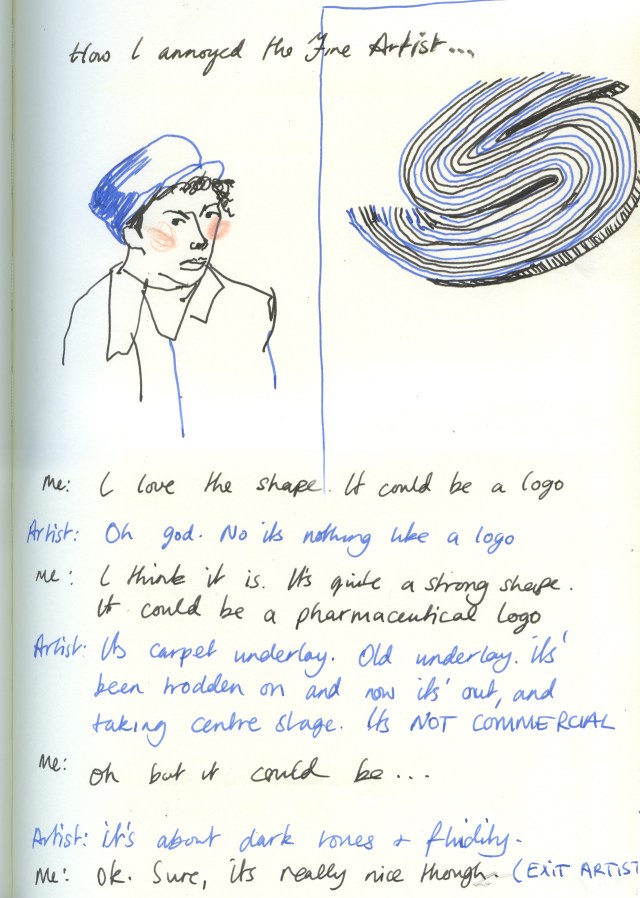 How I annoyed the Fine Artist...
Me: I love the shape. It could be a logo
Artist: Oh god. No its nothing like a logo
Me: I think it is. It's quite a strong shape.
It could be a pharmaceutical logo
Artist: Its carpet underlay. Old underlay. its'
been trodden on and now its' out, and
taking centre stage. Its NOT COMMERCIAL
Me: Oh but it could be...
Artist: it's about dark tones + fluidity.
Me: Ok. Sure, its really nice though. (EXIT ARTIST